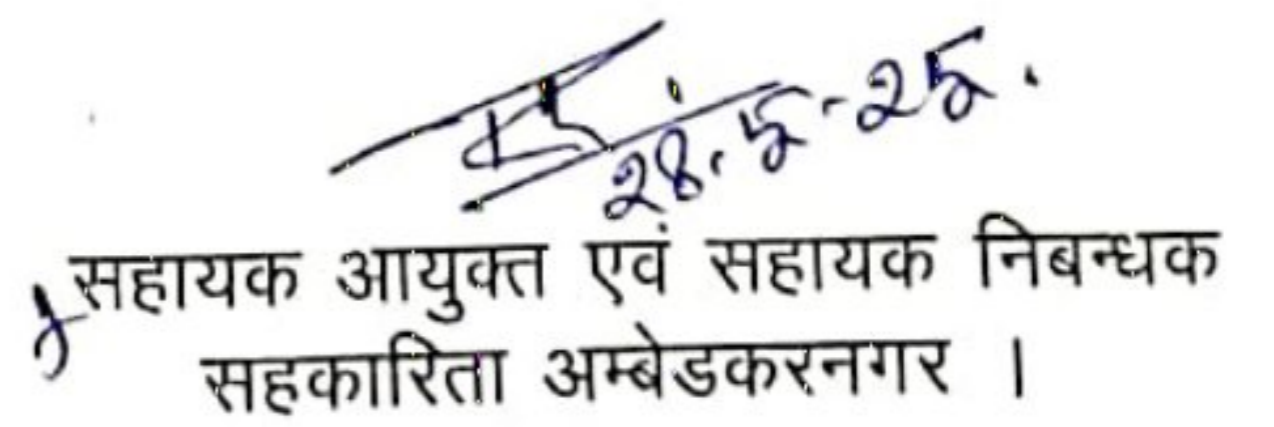 28.5-25.
सहायक आयुक्त एवं सहायक निबन्धक
सहकारिता अम्बेडकरनगर ।